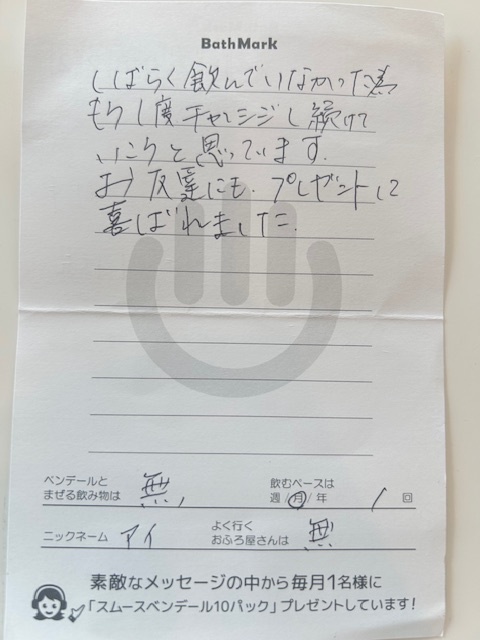 BathMark
しばらく飲んでいなかった為
もう1度チャレンジし続けて
いこうと思っています。
お友達にも、プレゼントに
喜ばれました。
ベンデールと
まぜる飲み物は 無
飲むペースは
週/月/年 1 回
ニックネーム アイ
よく行く
おふろ屋さんは 無
素敵なメッセージの中から毎月1名様に
「スムースベンデール10パック」プレゼントしています!